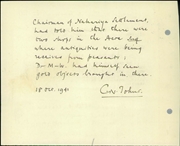 Chairman of Nahariya Settlement,
had told him that there were
two shops in the Acre Suq
where antiquities were being
received from peasants:
Dr. M. had himself seen
gold objects brought in there.
18 Dec. 1941
C.N. Johns.